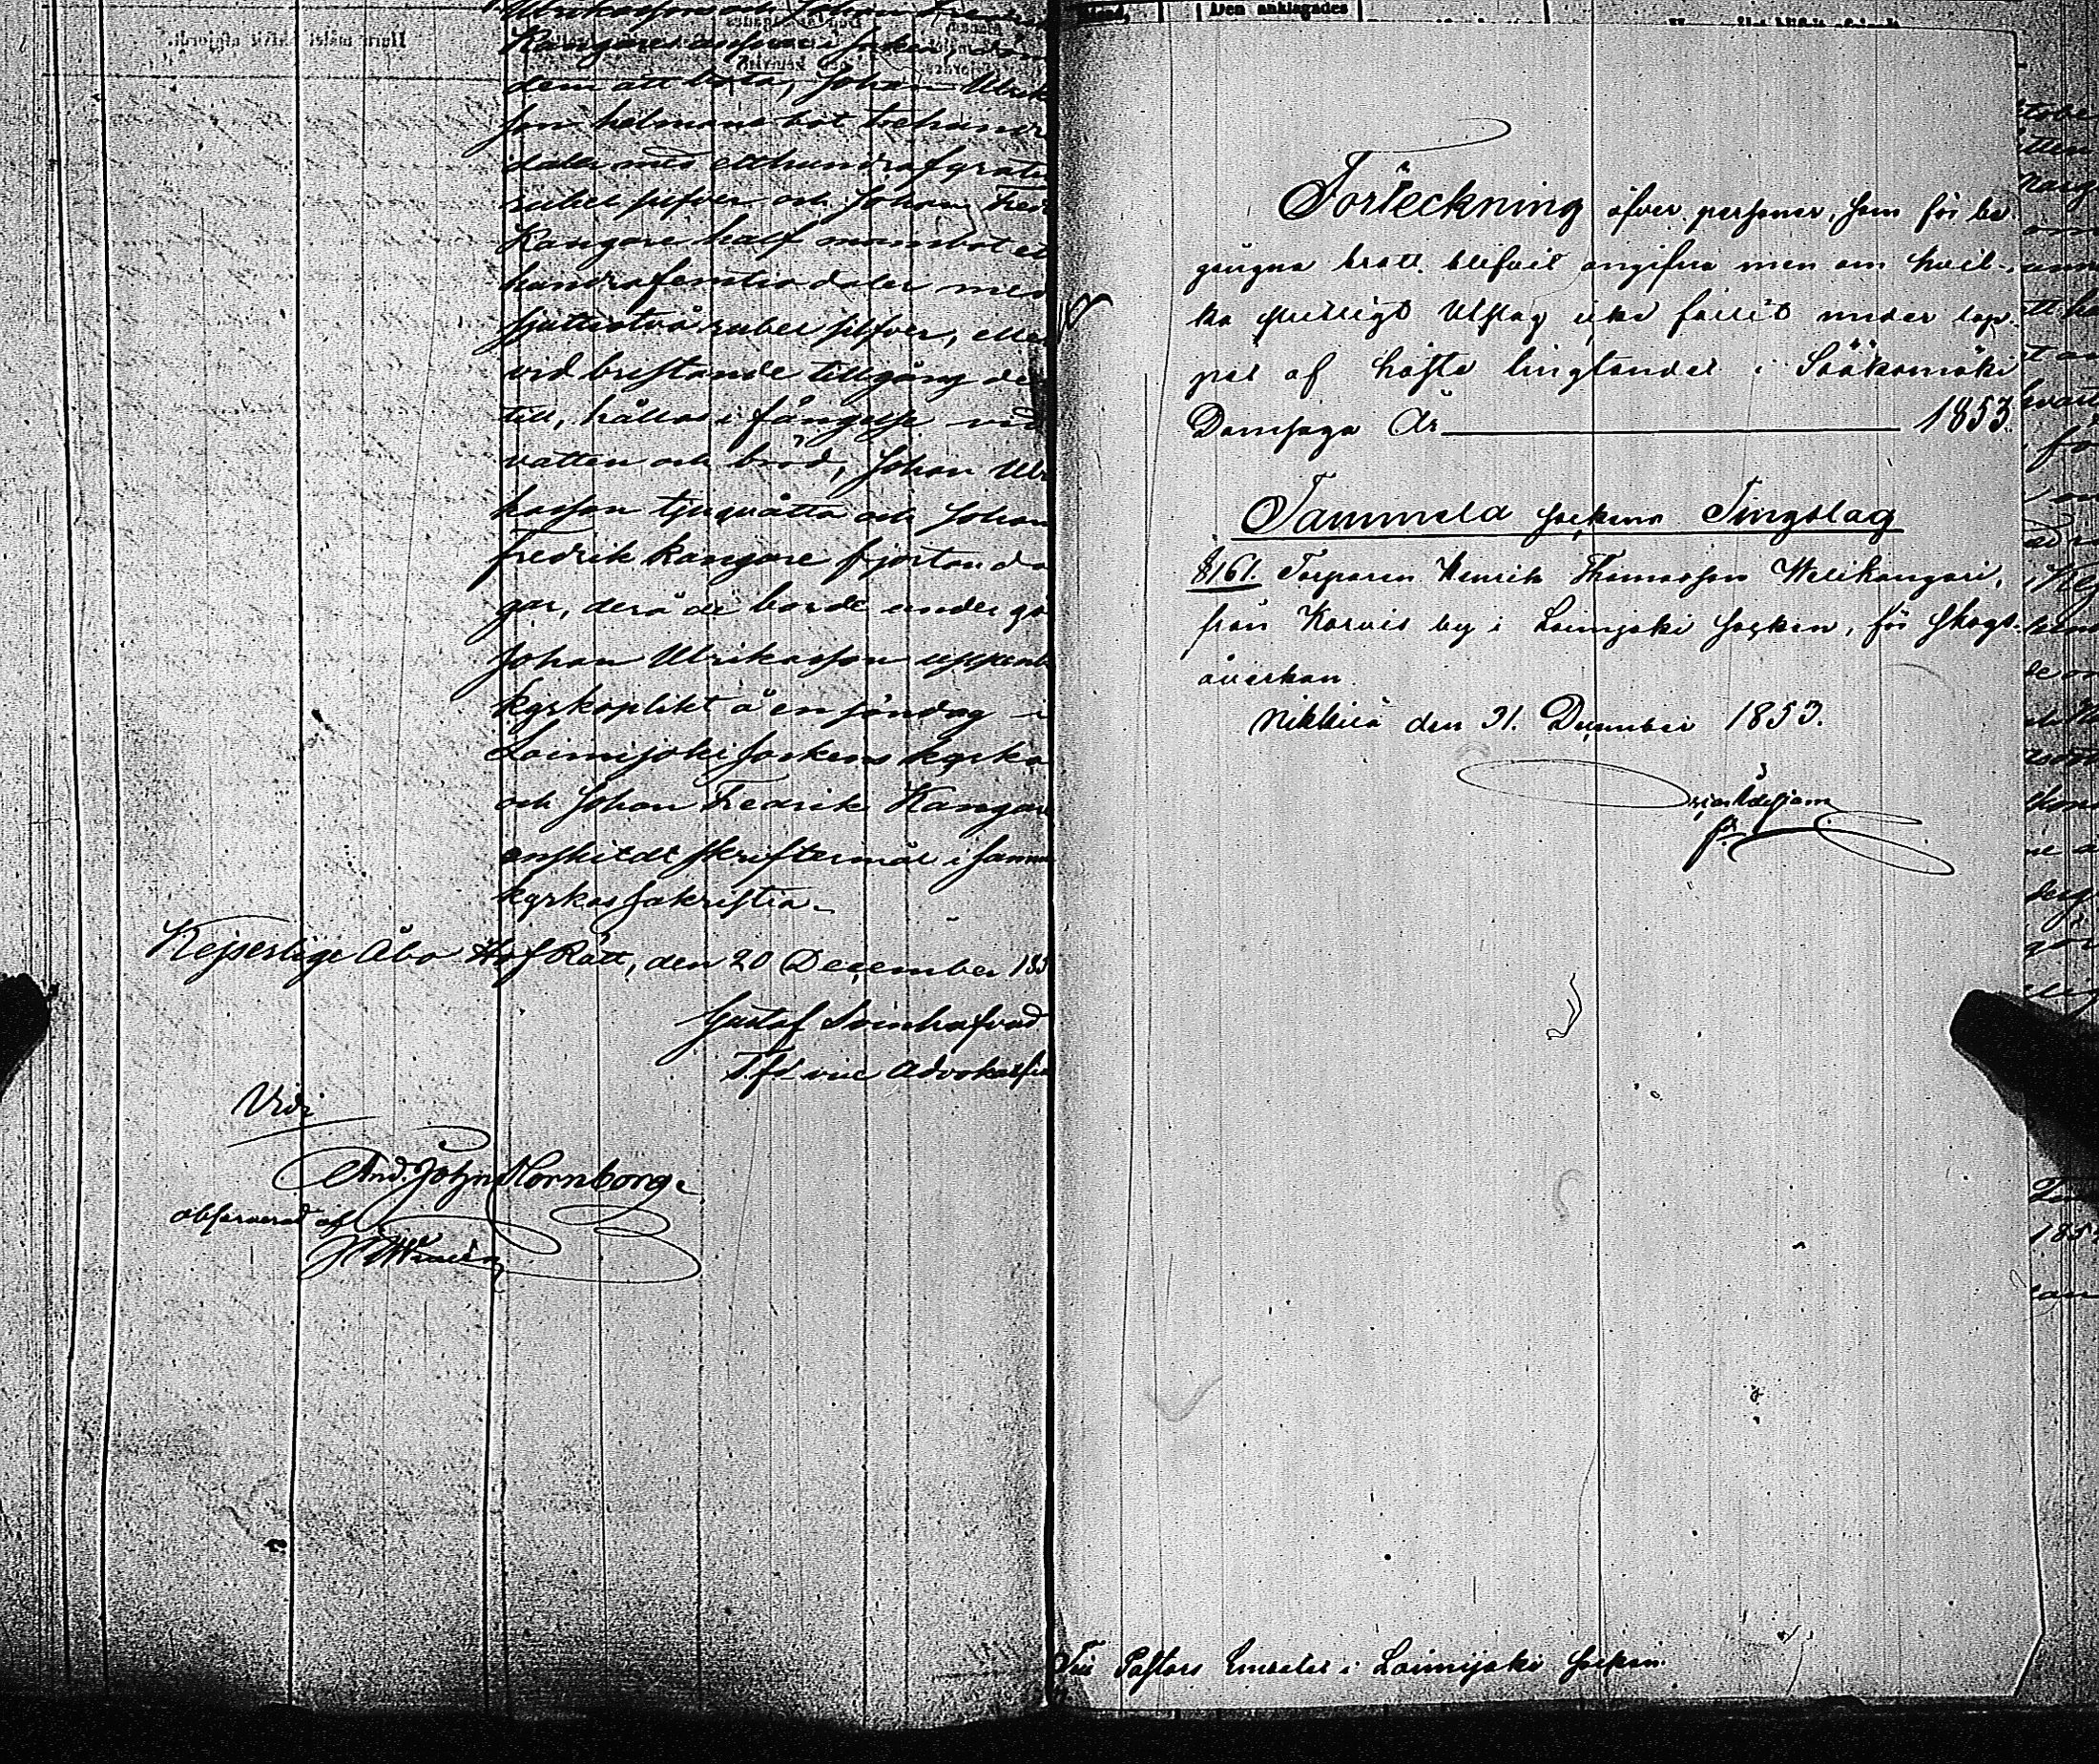 Ulrikasson och Johan Fredrik
Kangare ansvar i saken, döm
dem att böta, Johan Ulrik
son helmansbot trehundra
daler med etthundrafyratio
rubel silfver och Johan Fred
Kangare half mansbot et
hundrafemtio daler med
sjuttiotvå rubel silfver, eller
vid bristande tillgång der
till, hållas i fängelse vid
vatten och bröd, Johan Ulri
kasson tjuguåtta och Johan
Fredrik Kangare fjorton da
gar, derå de borde undergå
Johan Ulrikasson uppenb
kyrkoplikt å en söndag i
Loimijoki sockens kyrka
och Johan Fredrik Kangare
enskildt skriftermål i samma
kyrkas sakristia.
Kejserliga Åbo HofRätt, den 20 December 185
Gustaf Svinhufvud
T.f. vice Advokatfis
Vidi
And. John Hornborg.
observerat af
Den anklagades
Förteckning öfver personer, som för be-
gångna brott blifvit angifna men om hvil-
ka slutligt Utslag icke fallit under lop-
pet af höste tingtandet i Sääksmäki
Domsaga År 1853.
Tammela sockens Tingslag
§161. Torparen Henrik Thomasson Welikangari,
från Karvis by i Loimjoki socken, för skogs-
åverkan.
Nikkilä den 31. December 1853.
Till Pastors Embetet i Loimijoki socken.